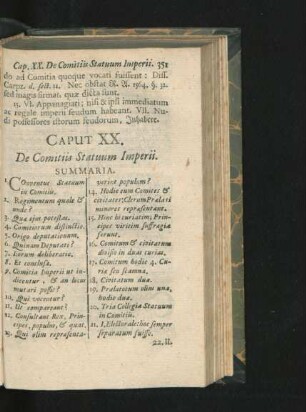 Cap. XX. De Comitiis Statuum Imperii. 351
do ad Comitia quoque vocati fuissent: Diss.
Carpz. d. sect. 11. Nec obstat R. A. 1564. §. 32.
sed magis firmat, quæ dicta sunt.
15. VI. Appanagiati; nisi & ipsi immediatum
ac regale imperii feudum habeant. VII. Nu-
di possessores istorum feudorum. Inhabere.
CAPUT XX.
De Comitiis Statuum Imperii.
SUMMARIA.
1. Conventus Statuum
in Comitiis.
2. Regimentum quale &
unde?
3. Quæ ejus potestas.
4. Comitiorum distinctio.
5. Origo deputationum.
6. Quinam Deputati?
7. Eorum deliberatio.
8. Et conclusa.
9. Comitia Imperii ut in-
dicentur, & an locus
mutari possit?
10. Qui vocentur?
11. Ut compareant?
12. Consultant Rex, Prin-
cipes, populus, & quat.
13. Qui olim repræsenta-
verint populum?
14. Hodie eum Comites &
civitates: Clerum Prælati
minores repræsentant.
15. Hinc hi curiatim; Prin-
cipes viritim suffragia
ferunt.
16. Comitum & civitatum
divisio in duas curias.
17. Comitum hodie 4. Cu-
riæ seu scamna.
18. Civitatum duæ.
19. Prælatorum olim una,
hodie duæ.
20. Tria Collegia Statuum
in Comitiis.
21. I. Electorale hoc semper
separatum fuisse.
22. II.